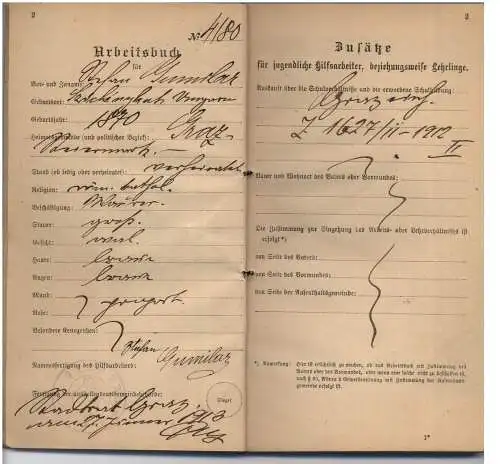 2
№ 4/80
Arbeitsbuch
für
Vor- und Zuname: Stefan Gumilar
Geburtsort: Ungarn
Geburtsjahr: 1870
Heimatsgemeinde (und politischer Bezirk): Graz
Steiermark
Stand (ob ledig oder verheiratet): verheiratet
Religion: röm. kathol.
Beschäftigung: Maurer
Statur: groß
Gesicht: oval
Haare: braun
Augen: braun
Mund:
Nase: } proport.
Besondere Kennzeichen:
Stefan Gumilar
Namensfertigung des Hilfsarbeiters:
Stadtrat Graz
Siegel
am 27. Jänner 1913
2
Zusätze
für jugendliche Hilfsarbeiter, beziehungsweise Lehrlinge.
Auskunft über die Schulverhältnisse und die erworbene Schulbildung:
Graz
Z 1627/II-1912
II
Name und Wohnort des Vaters oder Vormundes:
Die Zustimmung zur Eingehung des Arbeits- oder Lehrverhältnisses ist
erfolgt*):
von Seite des Vaters:
von Seite des Vormundes:
von Seite der Aufenthaltsgemeinde:
*) Anmerkung: Hier ist ersichtlich zu machen, ob das Arbeitsbuch mit Zustimmung des
Vaters oder des Vormundes, oder wenn eine solche nicht zu beschaffen ist,
nach § 80, Gewerbeordnung mit Zustimmung der Aufenthalts-
gemeinde erfolgt ist.
1*